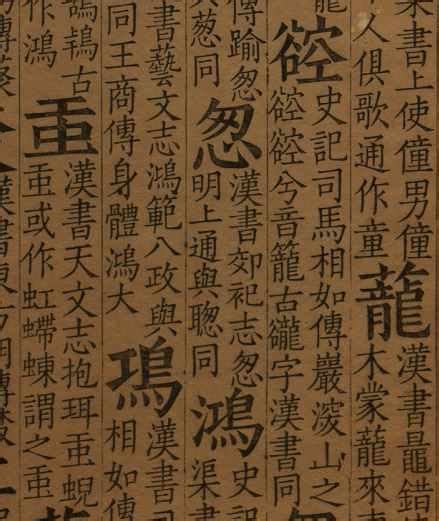 書上使僮男僮
人俱歌通作童
蘢
漢書鼂錯
木蒙蘢來
谾
史記司馬相如傳巖深山之
谾谾兮音籠古豅字漢書同
傳踰怱
蔥同
怱
漢書郊祀志怱
明上通與聰同
鴻
史記
渠書
書藝文志鴻範八政與
同王商傳身體鴻大
漢書司
相如傳
鵠古
作鴻
漢書天文志抱珥蜺
或作虹螮蝀謂之